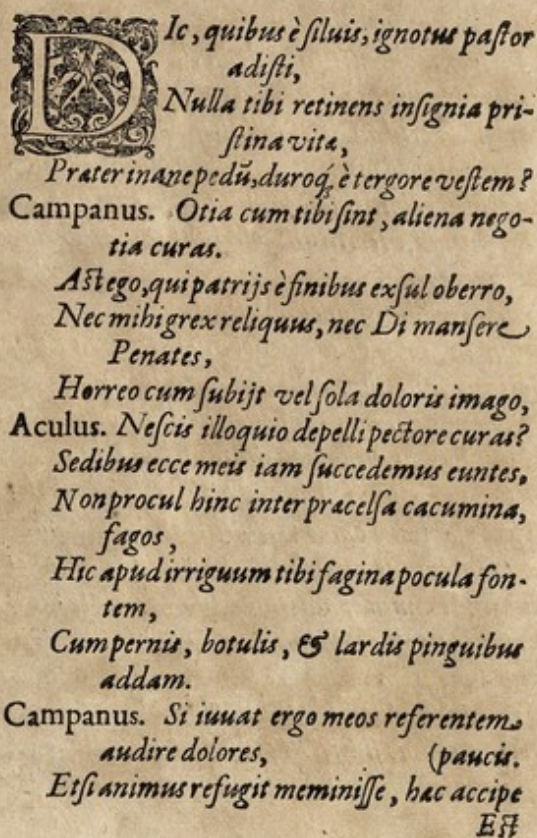 DIc, quibus è ſiluis, ignotus paſtor
adiſti,
Nulla tibi retinens inſignia pri-
ſtina vitæ,
Præter inane pedũ, duroq́; è tergore veſtem?
Campanus. Otia cum tibi ſint, aliena nego-
tia curas.
Aſt ego, qui patrijs è finibus exſul oberro,
Nec mihi grex reliquus, nec Di manſere
Penates,
Horreo cum ſubijt vel ſola doloris imago,
Aculus. Neſcis illoquio depelli pectore curas?
Sedibus ecce meis iam ſuccedemus euntes,
Non procul hinc inter præcelſa cacumina,
fagos,
Hic apud irriguum tibi fagina pocula fon-
tem,
Cum pernis, botulis, & lardis pinguibus
addam.
Campanus. Si iuuat ergo meos referentem
audire dolores, (paucis.
Etſi animus refugit meminiſſe, hæc accipe
Eſt